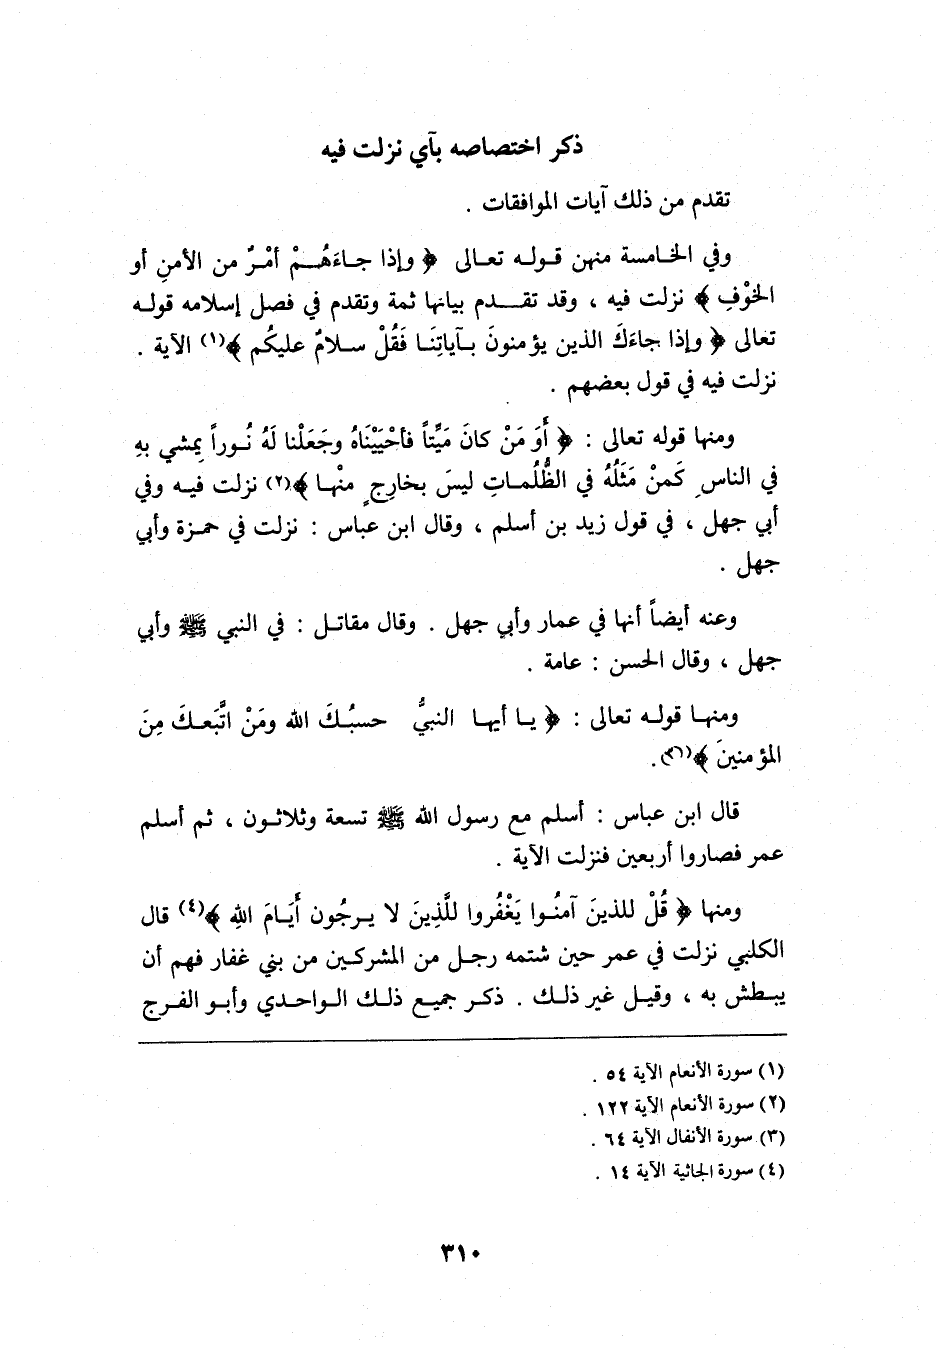 ذكر اختصاصه بآي نزلت فيه
تقدم من ذلك آيات الموافقات .
وفي الخامسة منهن قوله تعالى ﴿ وإذا جاءَهُمْ أمْرٌ من الأمنِ أو
الخوْفِ ﴾ نزلت فيه ، وقد تقدم بيانها ثمة وتقدم في فصل إسلامه قوله
تعالى ﴿ وإذا جاءَكَ الذين يؤمنونَ بآياتِنَا فَقُلْ سلامٌ عليكُم ﴾(١) الآية .
نزلت فيه في قول بعضهم .
ومنها قوله تعالى : ﴿ أَوَ مَنْ كانَ مَيِّتاً فأحْيَيْنَاهُ وجَعَلْنا لَهُ نُوراً يمشي بهِ
في الناسِ كَمنْ مَثَلُهُ في الظُّلُماتِ ليسَ بخارِجٍ منْها ﴾(٢) نزلت فيه وفي
أبي جهل ، في قول زيد بن أسلم ، وقال ابن عباس : نزلت في حمزة وأبي
جهل .
وعنه أيضاً أنها في عمار وأبي جهل . وقال مقاتل : في النبي ﷺ وأبي
جهل ، وقال الحسن : عامة .
ومنها قوله تعالى : ﴿ يا أيها النبيُّ حسبُكَ الله ومَنْ اتَّبَعكَ مِنَ
المؤمنينَ ﴾(٣) .
قال ابن عباس : أسلم مع رسول الله ﷺ تسعة وثلاثون ، ثم أسلم
عمر فصاروا أربعين فنزلت الآية .
ومنها ﴿ قُلْ للذينَ آمنُوا يَغْفُروا للَّذِينَ لا يرجُون أَيَامَ اللهِ ﴾(٤) قال
الكلبي نزلت في عمر حين شتمه رجل من المشركين من بني غفار فهم أن
يبطش به ، وقيل غير ذلك . ذكر جميع ذلك الواحدي وأبو الفرج
(١) سورة الأنعام الآية ٥٤ .
(٢) سورة الأنعام الآية ١٢٢ .
(٣) سورة الأنفال الآية ٦٤ .
(٤) سورة الجاثية الآية ١٤ .
٣١٠